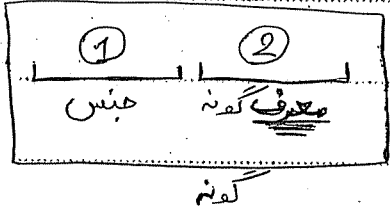 ① ②
جنس معرف گونه
گونه